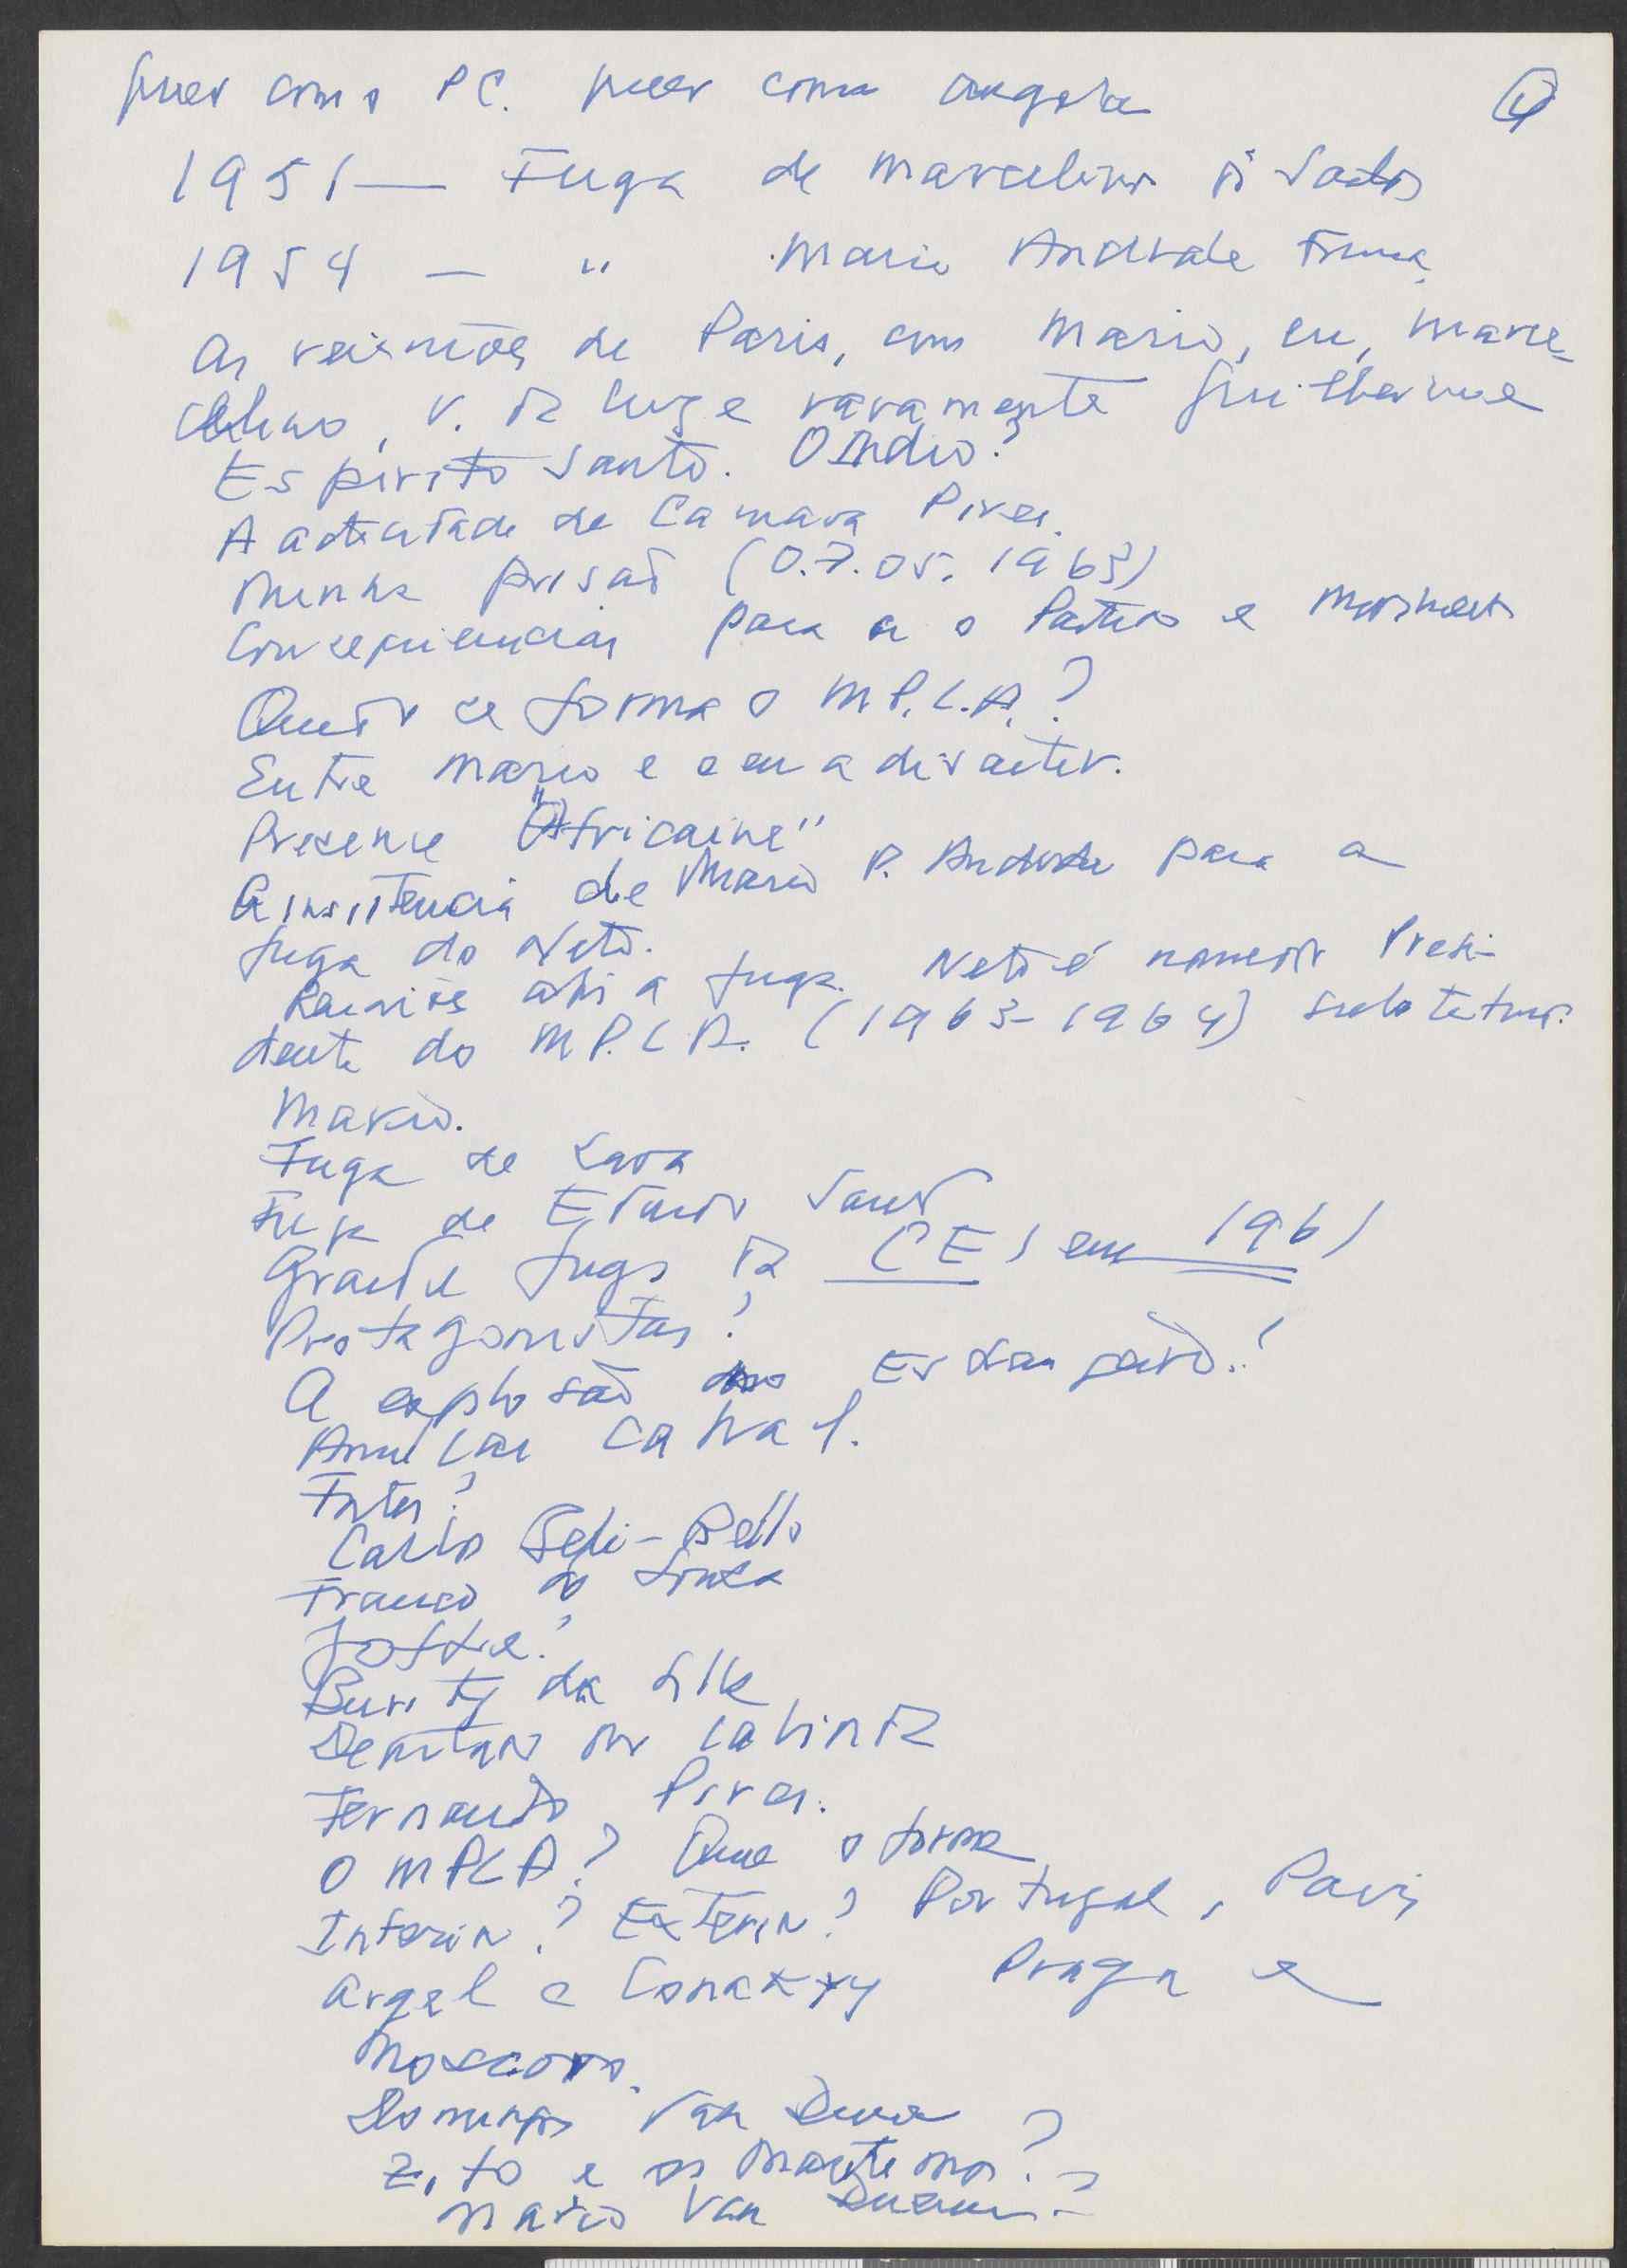 quer como PC. quer como Angola
4
1951 — Fuga de Marcelino dos Santos
1954 — " Mario Andrade
As reuniões de Paris, com Mario, eu, Marce-
lino, V. da Cruz e raramente Guilherme
Espirito Santo. O Indio?
A de Camara Pires.
Minha prisão (07.05.1963)
Consequencias para o Partido e
Quando se forma o M.P.L.A.?
Entre Mario e eu a
Presence "Africaine"
A insistencia de Mario P. Andrade para a
fuga do Neto.
Reuniões a fuga. Neto é nomeado Presi-
dente do M.P.L.A. (1963-1964)
Mario.
Fuga de Lara
Fuga de Eduardo Santos
Grande fuga da CEI em 1961
Protagonistas?
A explosão no Estrangeiro!
Amilcar Cabral.
Carlos -Bello
de Souza
Jofre?
Burity da Silva
de Cabinda
Fernando Pires.
O MPLA? Que o forma
Interior? Exterior? Portugal, Paris
Argel e Conakry Praga e
Moscovo.
Domingos Van Dunem
Zito e os Monteiros?
Mario Van Dunem?